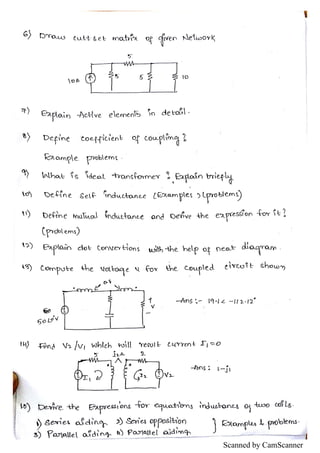 6) Draw cutt set matrix of given Network
5
10A 5 5 10
7) Explain Active elements in detail.
8) Define coefficient of coupling?
Example problems.
9) What is ideal transformer? Explain briefly
10) Define self inductance (Examples) (problems)
11) Define mutual inductance and Derive the expression for it?
(problems)
12) Explain dot convertions with the help of neat diagram.
13) Compute the voltage V for the coupled circuit shown
V
Ans:-
14) Find V2/V1 which will result current I1=0
5 2
I1 I2 V2
Ans: 1-j1
15) Derive the Expressions for equations inductances of two coils.
1) Series aiding 2) Series opposition
3) Parallel aiding 4) Parallel aiding
} Examples & problems.
Scanned by CamScanner